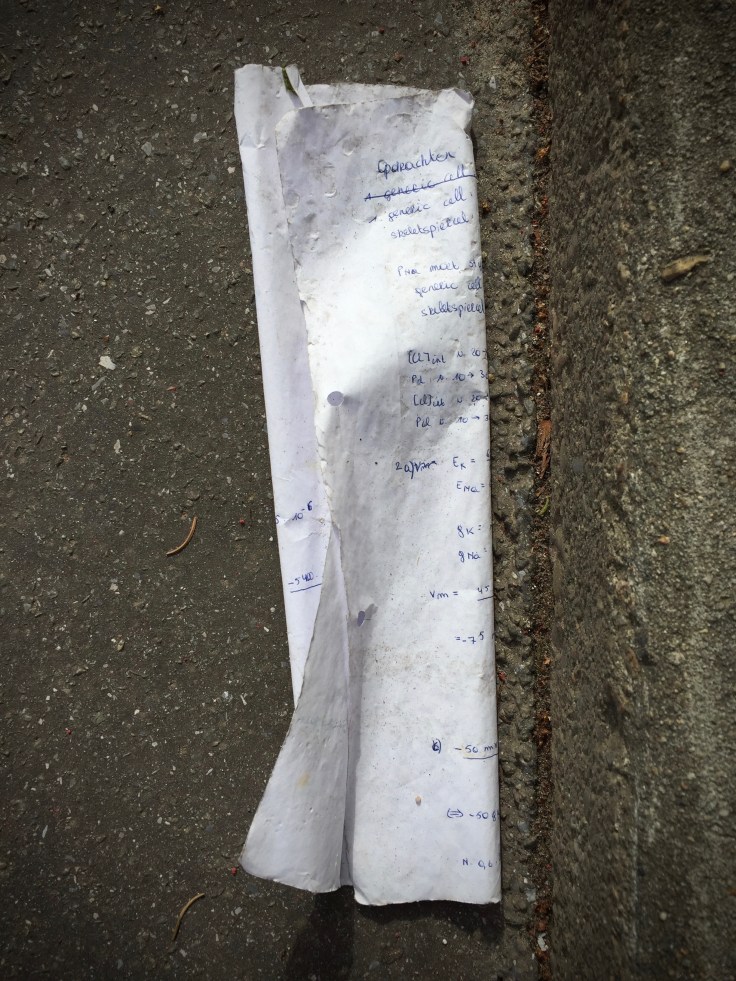 Opdrachten
1. generic cell
1. generic cell
skeletspiercel
PNa moet
generic cell
skeletspiercel
[Cl]int
PCl 10 → 3
[Cl]int
PCl 10 → 3
2a) Vm EK =
ENa =
gK =
gNa =
Vm = 45
= -75
b) -50 m
(⇒ -50 g
10⁻⁶
-5400